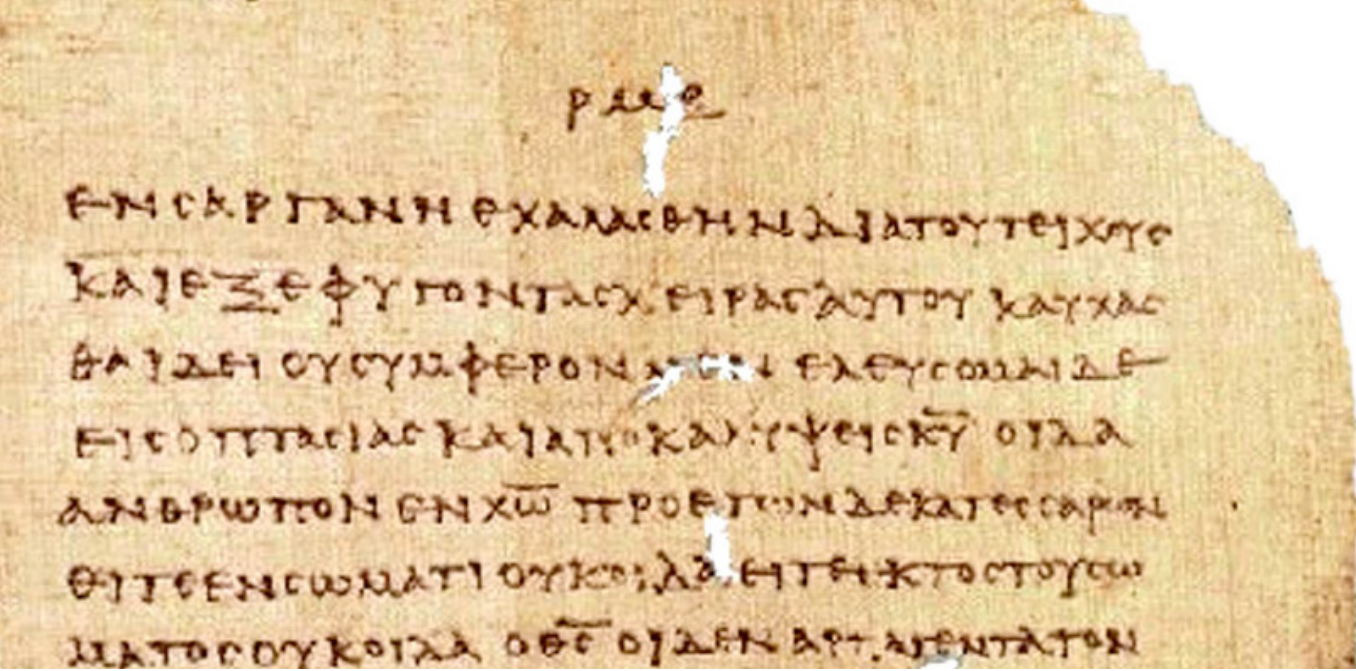 ΕΝ ΣΑΡΓΑΝΗ ΕΧΑΛΑΣΘΗΝ ΔΙΑ ΤΟΥ ΤΕΙΧΟΥΣ
ΚΑΙ ΕΞΕΦΥΓΟΝ ΤΑΣ ΧΕΙΡΑΣ ΑΥΤΟΥ ΚΑΥΧΑΣ
ΘΑΙ ΔΕΙ ΟΥ ΣΥΜΦΕΡΟΝ ΜΕΝ ΕΛΕΥΣΟΜΑΙ ΔΕ
ΕΙΣ ΟΠΤΑΣΙΑΣ ΚΑΙ ΑΠΟΚΑΛΥΨΕΙΣ Κ̅Υ̅ ΟΙΔΑ
ΑΝΘΡΩΠΟΝ ΕΝ ΧΩ̅ ΠΡΟ ΕΤΩΝ ΔΕΚΑΤΕΣΣΑΡΩΝ
ΕΙΤΕ ΕΝ ΣΩΜΑΤΙ ΟΥΚ ΟΙΔΑ ΕΙΤΕ ΕΚΤΟΣ ΤΟΥ ΣΩ
ΜΑΤΟΣ ΟΥΚ ΟΙΔΑ Ο Θ̅Σ̅ ΟΙΔΕΝ ΑΡΠΑΓΕΝΤΑ ΤΟΝ